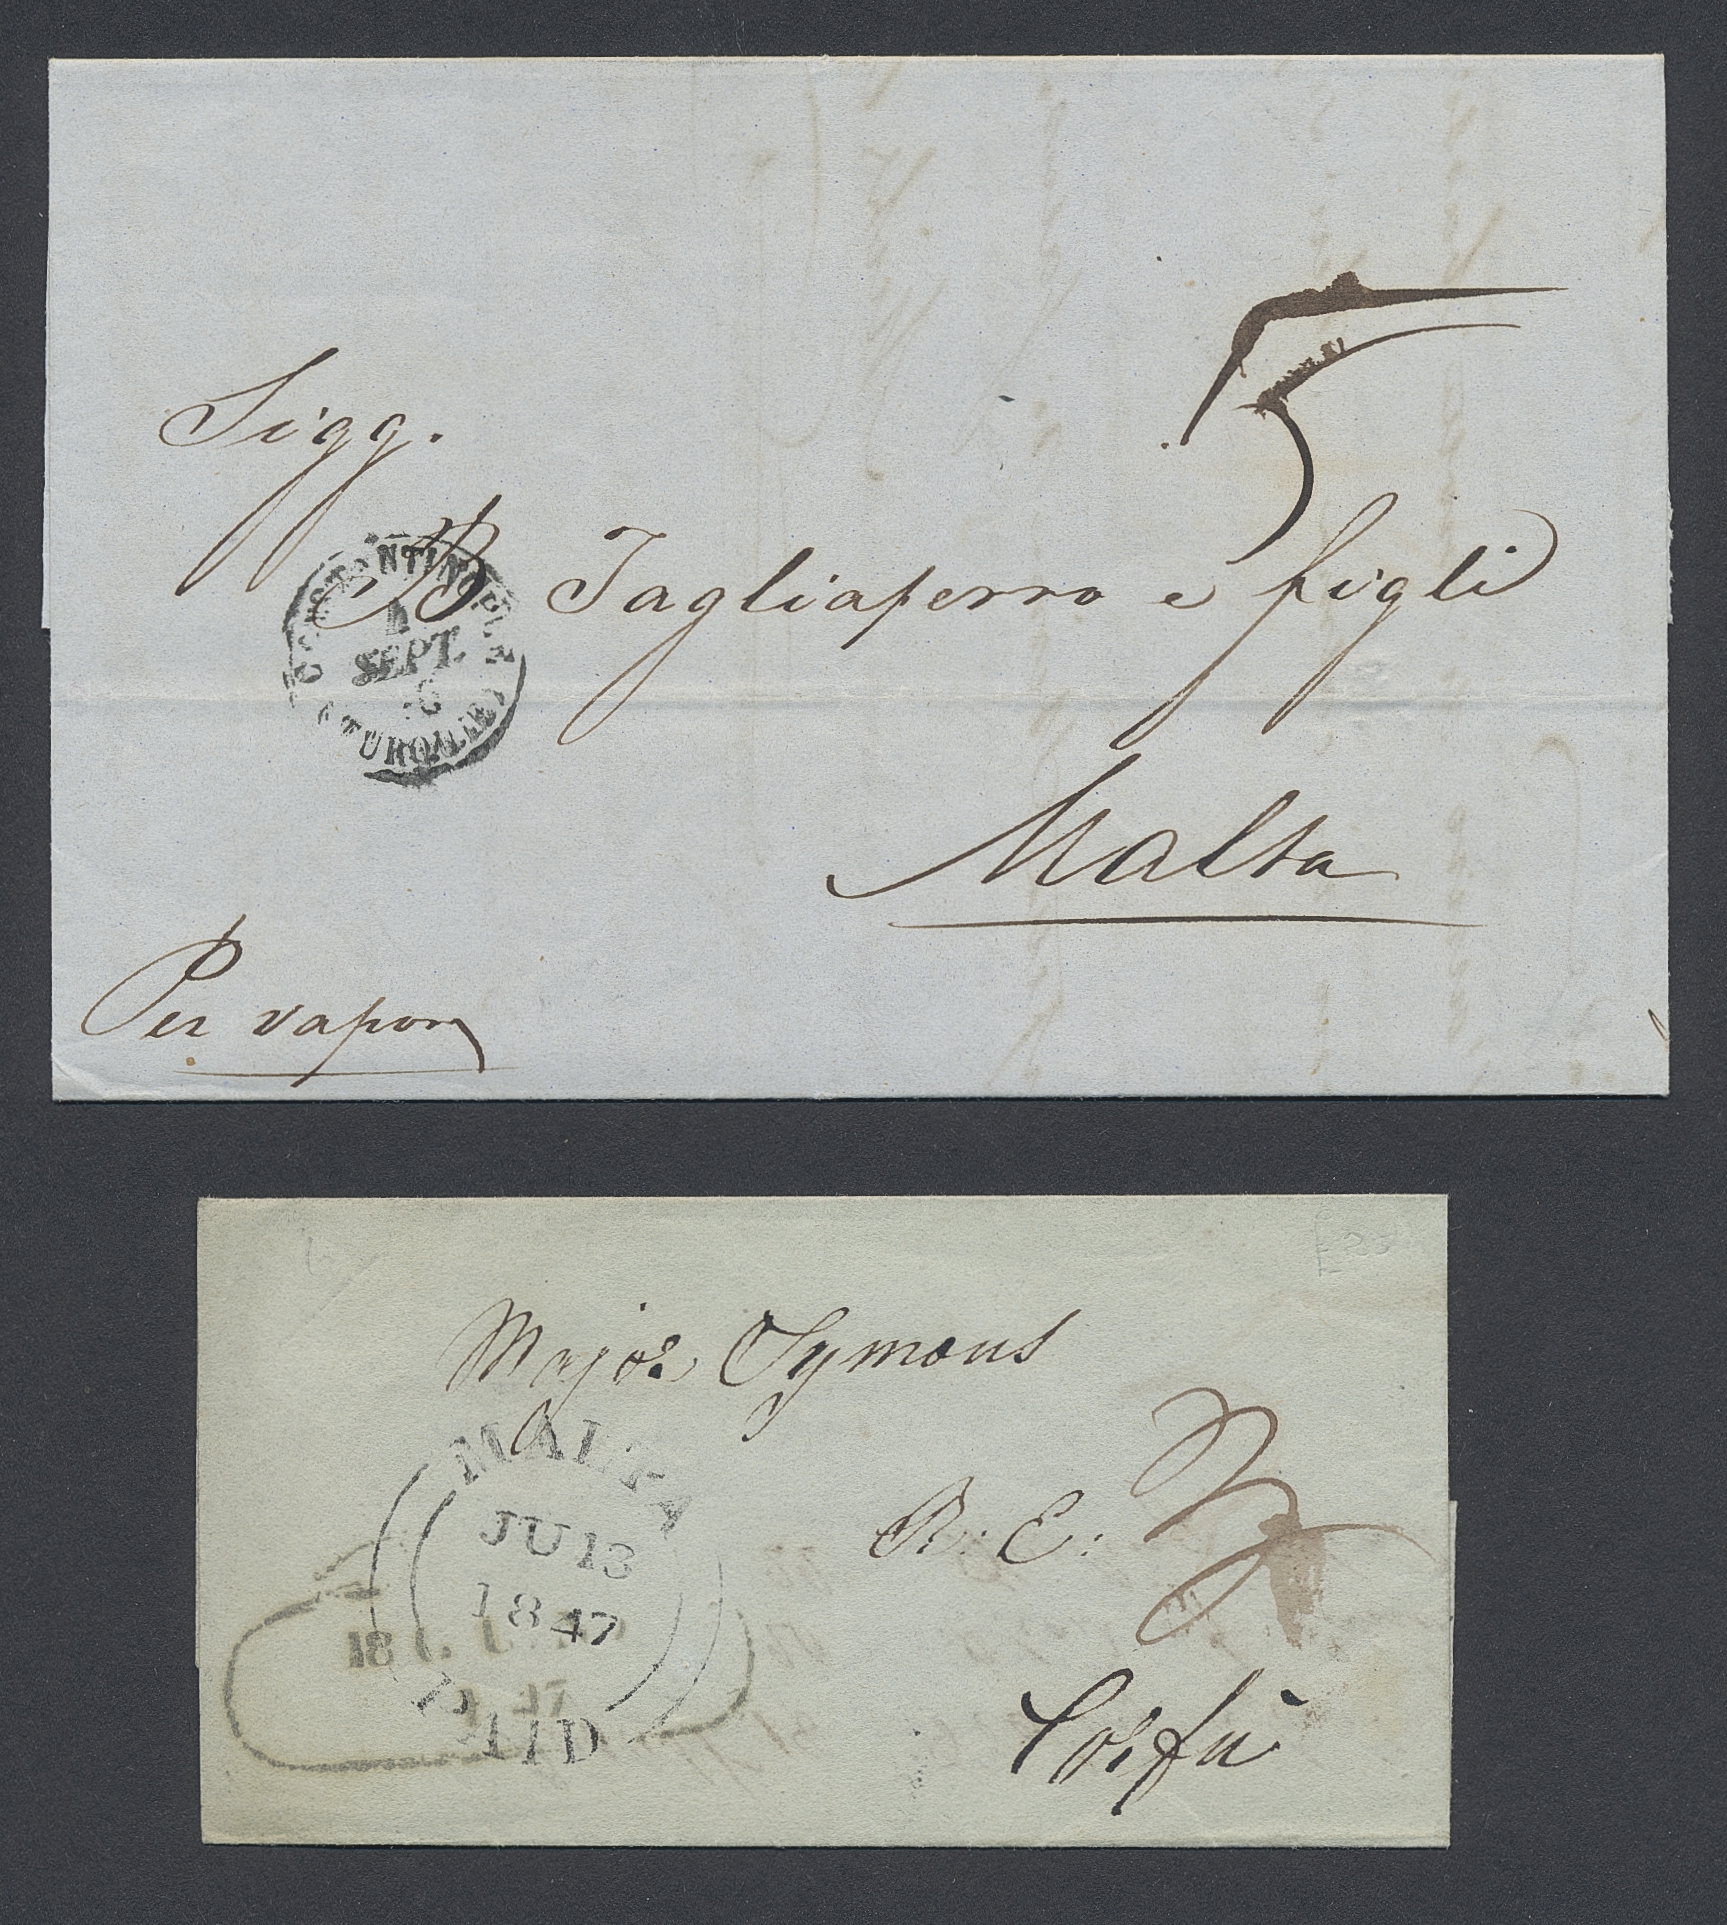 Sigg.
B Tagliaferro e figli
5
CONSTANTINOPLE
SEPT.
(TURQUIE)
Malta
Per vapore
Major Symons
R: E:
MALTA
JU 13
1847
PAID
18
47
Corfu